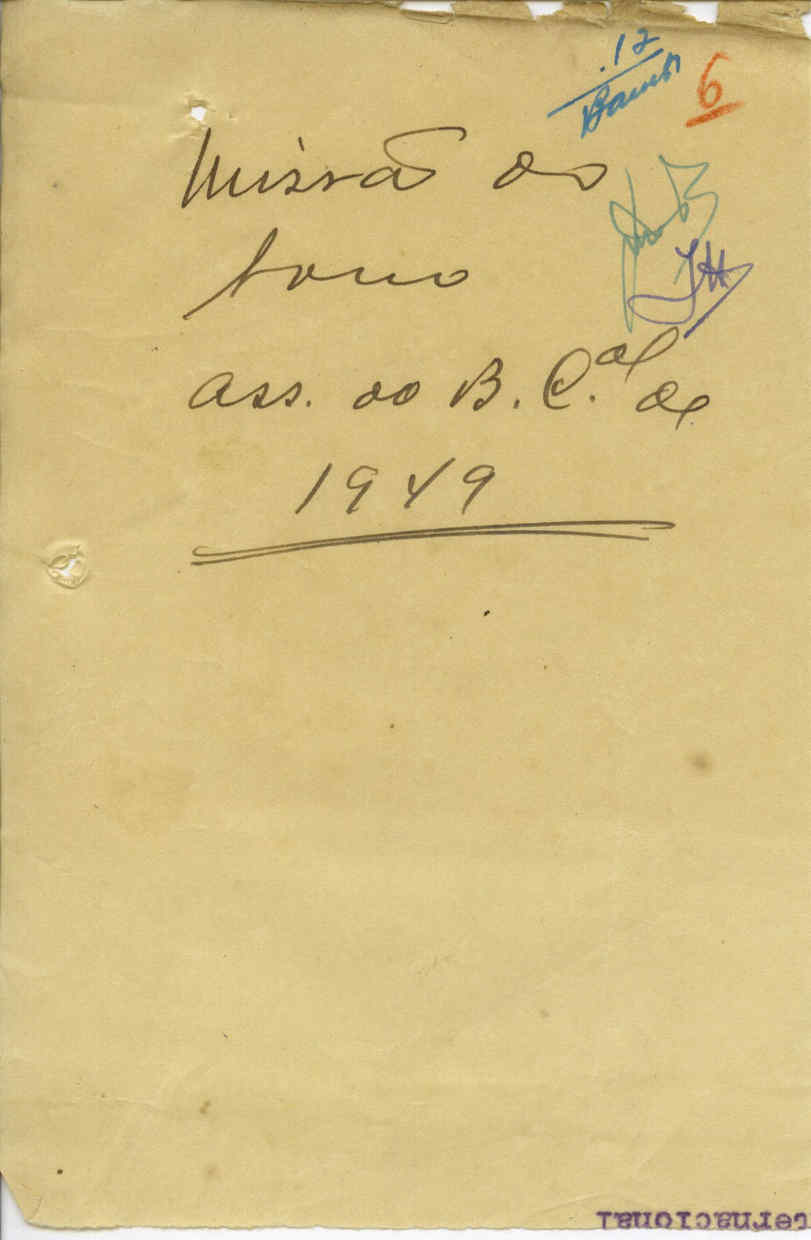 12
6
Missão do
Ass. do B. C.al de
1949
ternacional